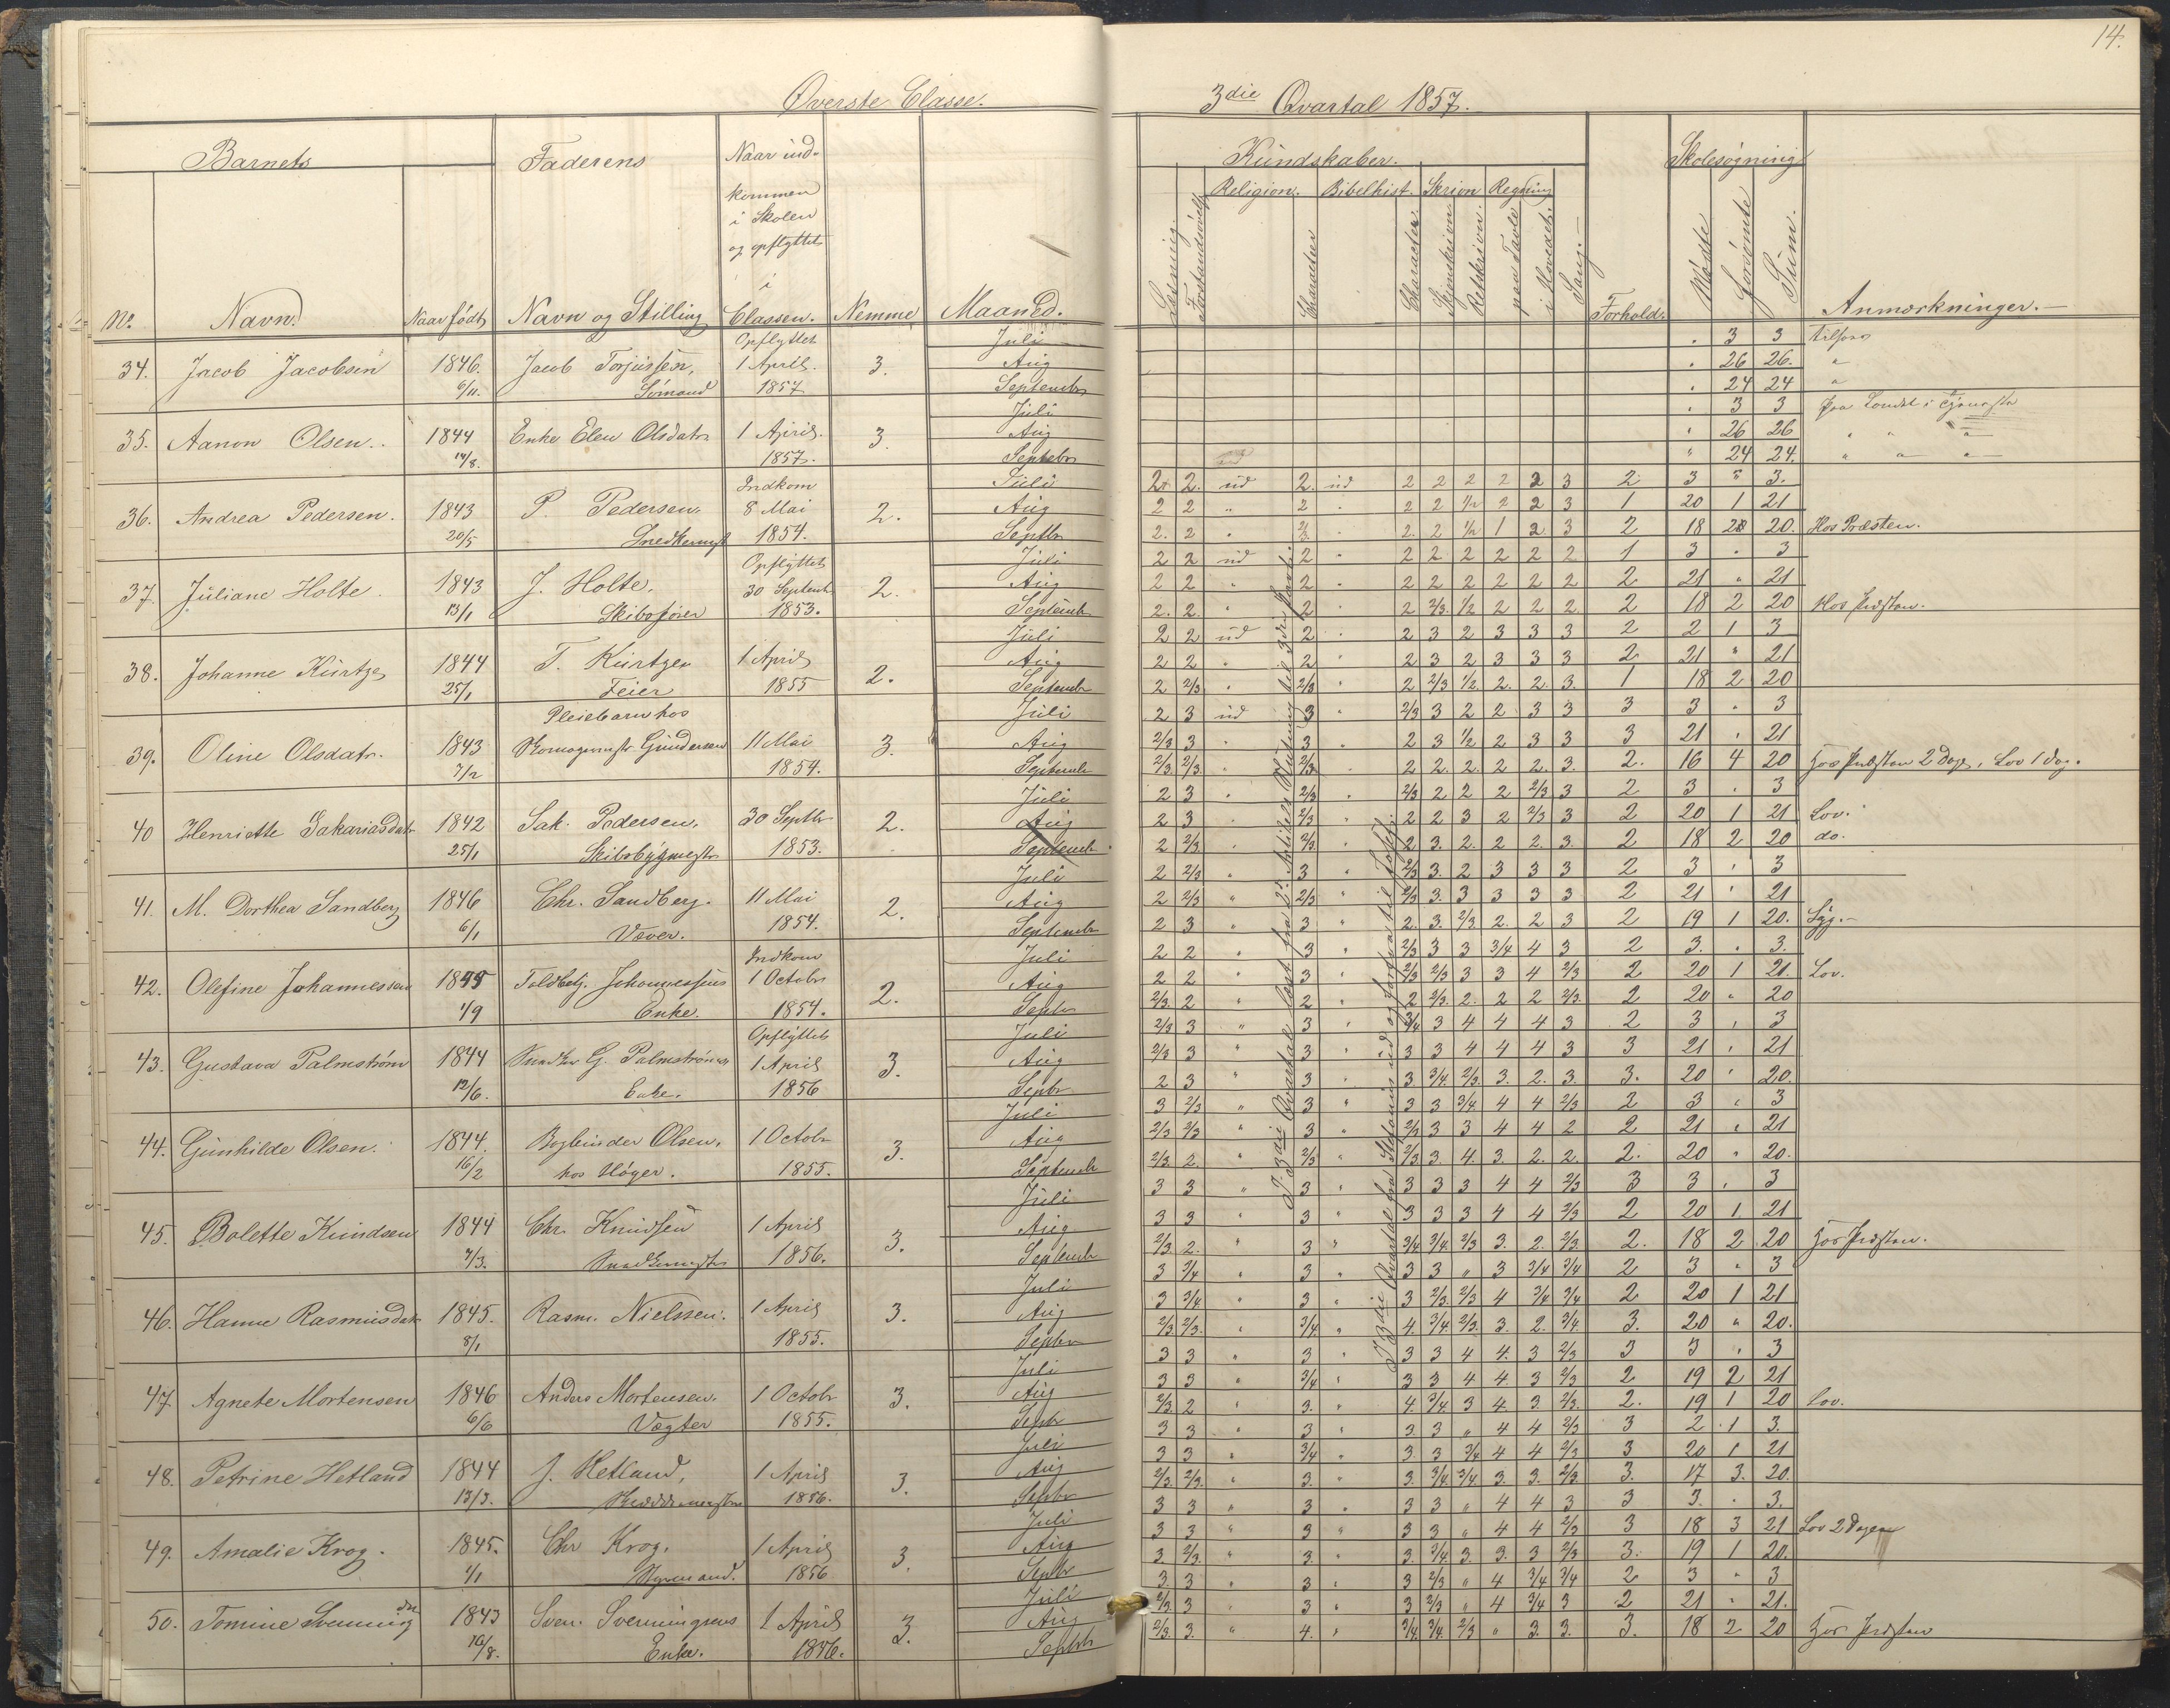 14.
Øverste Classe.
3die Qvartal 1857.
Barnets
Faderens
Naar ind-
kommen
i Skolen
og opflyttet
i
Classen.
No.
Navn.
Naar født
Navn og Stilling
Nemme
Maaned.
Kundskaber.
Religion. Bibelhist. Skrivn Regning
Læsning.
Forstandsøvels
Character
Character
Skjønskrivn
Retskrivn.
paa Tavle
i Hovedet.
Sang.
Forhold.
Skolesøgning
Mødte
Forsømte
Sum.
Anmærkninger.
34. Jacob Jacobsen 1846. 6/11. Jacob Torjussen, Sømand Opflyttet 1 April. 1857 3.
Juli . 3 3 tilsøes
Aug . 26 26. "
Septembr . 24 24 "
35. Aanon Olsen. 1844 14/8. Enke Elen Olsdatr 1 April. 1857. 3.
Juli . 3 3 paa Landet i
Aug " 26 26 " " "
Septebr " 24 24. " " "
36. Andrea Pedersen. 1843 20/5 P. Pedersen. Snedkermst Indkom 8 Mai 1854. 2.
Juli 2 2. ud 2. ud 2 2 2 2 2 3 2 3 " 3.
Aug 2 2 " 2 . 2 2 1/2 2 2 3 1 20 1 21
Septbr 2. 2 " 2/3 . 2. 2 1/2 1 2 3 2 18 2 20. Hos Præsten.
37. Juliane Holte. 1843 13/1 J. Holte. Skibsfører Opflyttet 30 Septemb 1853. 2.
Juli 2 2 ud 2 . 2 2 2 2 2 2 1 3 . 3
Aug 2 2 " 2 . 2 2 2 2 2 2 2 21 " 21
Septembr 2. 2 " 2 . 2 2/3 1/2 2 2 2 2 18 2 20 Hos Præsten.
38. Johanne Kürtze 1844 25/1 T. Kürtzer Feier 1 April 1855 2.
Juli 2 2 ud 2 . 2 3 2 3 3 3 2 2 1 3
Aug 2 2 . 2 . 2 3 2 3 3 3 2 21 " 21
Septembr 2 2/3 . 2/3 . 2 2/3 1/2 2. 2. 3. 1 18 2 20
39. Oline Olsdatr. 1843 7/2 Pleiebarn hos Gundersen 11 Mai 1854. 3.
Juli 2 3 ud 3 . 2/3 3 2 2 3 3 3 3 . 3
Aug 2/3 3 . 3 . 2 3 1/2 2 3 3 3 21 . 21
Septemb 2/3. 2/3. . 2/3 . 2 2. 2. 2 2. 3. 2. 16 4 20 Hos Præsten 2 Dage, Lov 1 dag.
40 Henriette Sakariasdatr 1842 25/1 Sak. Pedersen. Skibsbygmester 30 Septbr 1853. 2.
Juli 2 3 . 2/3 . 2/3 2 2 2 2/3 3 2 3 . 3
Aug 2 3 . 2/3 " 2 2 3 2 2/3 3 2 20 1 21 Lov.
Septemb 2 2/3 . 2/3 . 2 3. 2. 2 2. 3. 2 18 2 20 do.
41. M. Dorthea Sandberg 1846 6/1 Chr. Sandberg. Væver. 11 Mai 1854. 2.
Juli 2 2/3 " 3 . 2/3 3. 2 3 3 3 2 3 . 3
Aug 2 2/3 " 2/3 " 2/3 3. 3 3 3 3 2 21 " 21
Septembr 2 3 " 3 " 2. 3. 2/3 2. 2 3 2 19 1 20. Syg.
42. Olefine Johannessen 1845 1/9 Toldbetj. Johannessens Enke. Indkom 1 Octobr 1854. 2.
Juli 2 2 " 3 . 2/3 3 3 3/4 4 3 2 3. . 3.
Aug 2 2 " 3 . 2/3 2/3 3 3 4 2/3 2 20 1 21. Lov.
Septr 2/3. 2 " 2 . 2 2/3. 2. 2 2 2/3. 2 20 " 20
43. Gustava Palmstrøm 1844 12/6. G. Palmstrøms Enke. Opflyttet 1 April 1856 3.
Juli 2/3 3 " 3 . 3/4 3 4 4 4 3 2 3 . 3
Aug 2/3 3 " 3 . 3 3 4 4 4 3 3 21 . 21
Septbr 2 3 " 3 . 3 3/4 2/3. 3. 2. 3. 3. 20 . 20.
44. Gunhilde Olsen. 1844. 16/2 Bogbinder Olsen. hos Høyer. 1 Octobr 1855. 3.
Juli 3 2/3 " 3 " 3 3 3/4 4 4 2/3 2 3 " 3
Aug 2/3 2/3 " 3 " 2/3 3 3 4 4 2 2 21 . 21
Septemb 2/3. 2. " 2/3 " 2/3 3. 4. 3. 2. 2. 2. 20 " 20.
45. Bolette Knudsen 1844 7/3. Chr. Knudsen Snedkermester 1 April 1856. 3.
Juli 3 3 " 3 . 3 3 3 4 4 2/3 3 3 . 3
Aug 3 3 " 3 . 3 3 3 4 4 2/3 2 20 1 21
Septembr 2/3 2. " 3 " 3/4 3/4. 2/3 3. 2. 2/3. 2. 18 2 20 Hos Præsten.
46. Hanne Rasmusdatr 1845. 8/1 Rasm. Nielssen. 1 April 1855. 3.
Juli 3 3/4 . 3 . 3 3 " 3 3/4 3/4 2 3 " 3
Aug 3 3/4 . 3 . 3 2/3. 2/3 4 3/4 3/4 2 20 1 21
Septbr 2/3. 2/3. . 3/4 " 4. 3/4. 2/3. 3. 2. 3/4. 3. 20 " 20.
47. Agnete Mortensen 1846 6/6 Anders Mortensen. Vægter 1 Octobr 1855. 3.
Juli 3 3 " 3 . 3 3 4 4. 3 2/3 3 3 . 3
Aug 3 3 . 3/4 . 3 3 4 4. 3 2/3 2 19 2 21
Septbr 2/3. 2 . 3. . 4. 3/4. 3 4. 3. 2/3. 2. 19 1 20 Lov.
48. Petrine Hetland 1844 13/3. J. Hetland, 1 April 1856. 3.
Juli 3 3 . 3 . 3. 3 " 4 4 2/3 3 2 1 3.
Aug 3 3 " 3/4 . 3. 3 3/4 4 4 2/3 3 20 1 21
Septbr 2/3. 2/3. . 3. . 3. 3/4. 3/4. 3. 3. 2/3. 3. 17 3. 20.
49. Amalie Krog. 1845. 1/1 Chr Krog. Styrmand. 1 April 1856 3.
Juli 3 3 " 3 . 3 3 " 4 4 3 3 3. . 3.
Aug 3 3 " 3 " 3 3 " 4 4 2/3 3 18 3 21 Lov 2 Dage
Septbr 3. 2/3. " 3. . 3. 3/4. 3. 3. 3 2/3 3. 19 1 20.
50. Tomine Svenningdtr 1843 16/8. Sven. Svenningsens Enke. 1 April 1856. 3.
Juli 3. 3 . 3 . 3 2/3 " 4 3/4 3/4 2 3 " 3
Aug 2/3 3 . 3 . 3 2/3 " 4 3/4 3 2 21 " 21.
Septbr 2/3. 3. " 4. . 3/4. 3/4. 2/3 " 3. 3. 3. 18 2 20 Hos Præsten